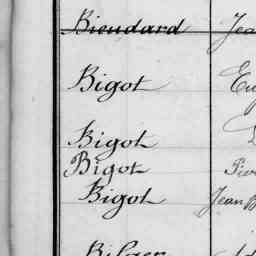 Bieudard Jea
Bigot Eu
Bigot
Bigot Pier
Bigot Jean B